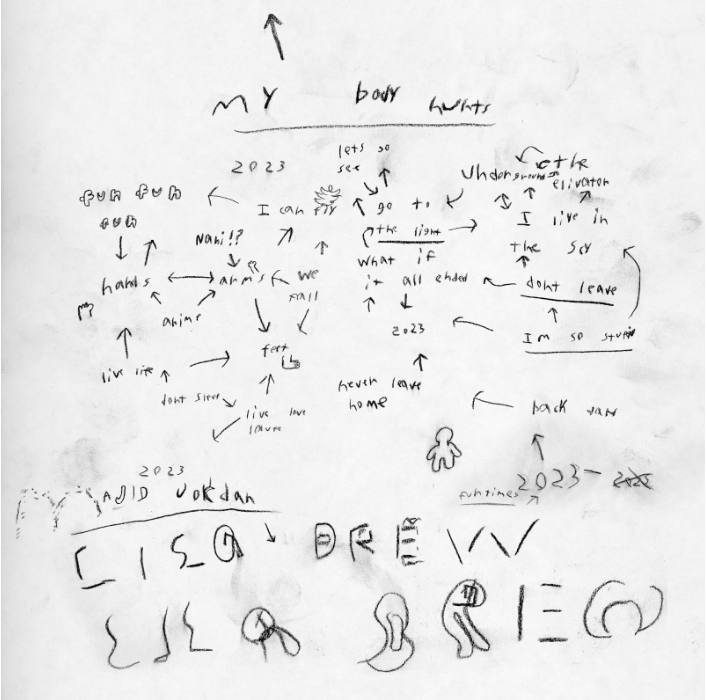 MY body huhts
lets go
see
2023
the
Underground
elivator
fun fun
fun
I can fly
go to
the light
I live in
the sky
Nani!?
what if
it all ended
hands
arms
we
fall
dont leave
anime
2023
Im so stupid
feet
live life
never leave
home
dont sleep
live love
back
2023
2023-2026
MAJID
fun times
LISA DREW